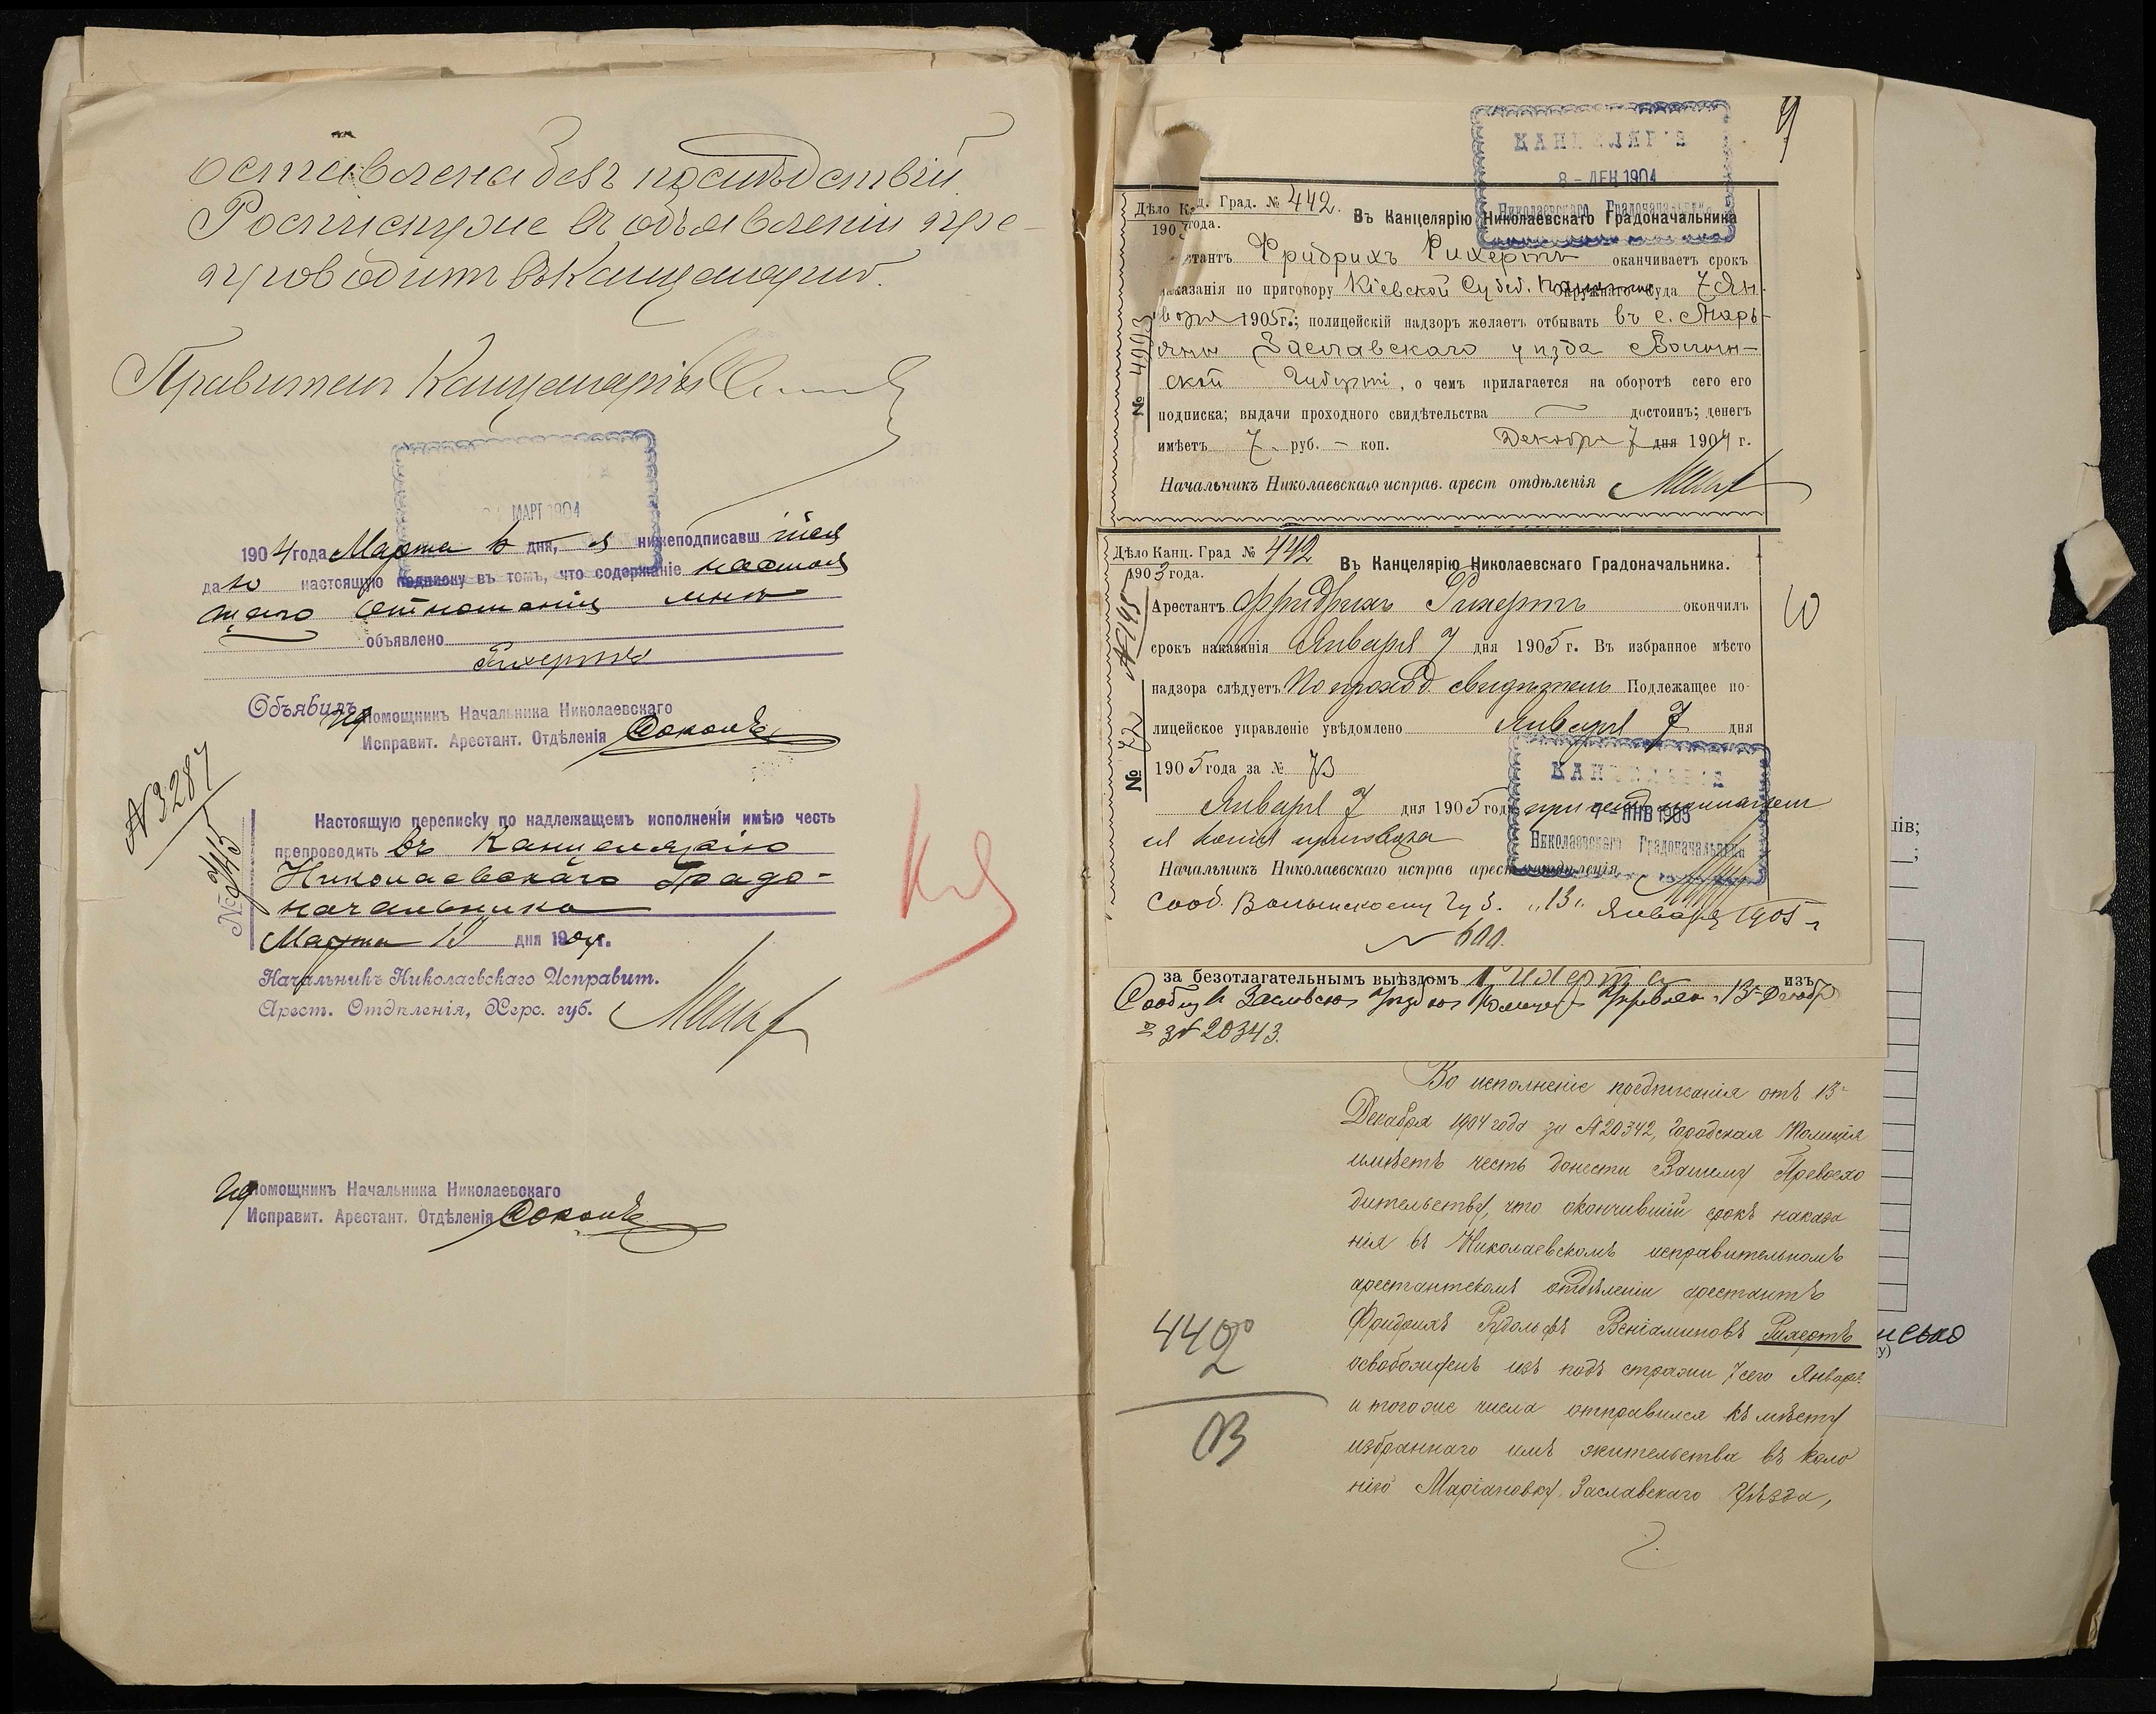 оставлена безъ послѣдствій.
Росписку же въ объявленіи пре-
проводитъ въ Канцелярію.
Правитель Канцеляріи
МАРТ 1904
1904 года Марта 10 дня, я нижеподписавшійся
далъ настоящую подписку въ томъ, что содержаніе настоя
щаго отношенія мнѣ
объявлено
Рихертъ
Объявилъ
Помощникъ Начальника Николаевскаго
Исправит. Арестант. Отдѣленія
N 3287
Настоящую переписку по надлежащемъ исполненіи имѣю честь
препроводить въ Канцелярію
Николаевскаго Градо-
начальника
Марта дня 1904 г.
Начальникъ Николаевскаго Исправит.
Арест. Отдѣленія, Херс. губ.
Помощникъ Начальника Николаевскаго
Исправит. Арестант. Отдѣленія
КАНЦЕЛЯРІЯ
8 - ДЕК 1904
Николаевскаго Градоначальника
Дѣло К. Град. № 442.
1903 года.
Въ Канцелярію Николаевскаго Градоначальника
стантъ Фридрихъ Рихертъ оканчиваетъ срокъ
наказанія по приговору Кіевской Судеб. Палаты Окружнаго Суда 7 Ян-
варя 1905 г.; полицейскій надзоръ желаетъ отбывать въ с. Марь-
яны Заславскаго уѣзда Волын-
ской Губерніи, о чемъ прилагается на оборотѣ сего его
подписка; выдачи проходного свидѣтельства — достоинъ; денегъ
имѣетъ 7 руб. — коп. Декабря 7 дня 1904 г.
Начальникъ Николаевскаго исправ. арест отдѣленія
Дѣло Канц. Град № 442
1903 года.
Въ Канцелярію Николаевскаго Градоначальника.
Арестантъ Фридрихъ Рихертъ окончилъ
срокъ наказанія Января 7 дня 1905 г. Въ избранное мѣсто
надзора слѣдуетъ по проход. свидѣтель Подлежащее по-
лицейское управленіе увѣдомлено Января 7 дня
1905 года за № 73
№ 72
Января 7 дня 1905 года
КАНЦЕЛЯРІЯ
7 - ЯНВ 1905
Николаевскаго Градоначальника
ся копія приговора
Начальникъ Николаевскаго исправ арест отдѣленія
Сооб. Волынскому Губ. „13„ Января 1905 г
N 600.
за безотлагательнымъ выѣздомъ Рихерта изъ
за N 20343.
Во исполненіе предписанія отъ 13
Декабря 1904 года за N 20342, Городская Полиція
имѣетъ честь донести Вашему Превосхо
дительству, что окончившій срокъ наказа
нія въ Николаевскомъ исправительномъ
арестантскомъ отдѣленіи арестантъ
Фридрихъ Рудольфъ Веніаминовъ Рихертъ
освобожденъ изъ подъ стражи 7 сего Января
и того же числа отправился къ мѣсту
избраннаго имъ жительства въ коло
нію Маріановку, Заславскаго Уѣзда,
442
03